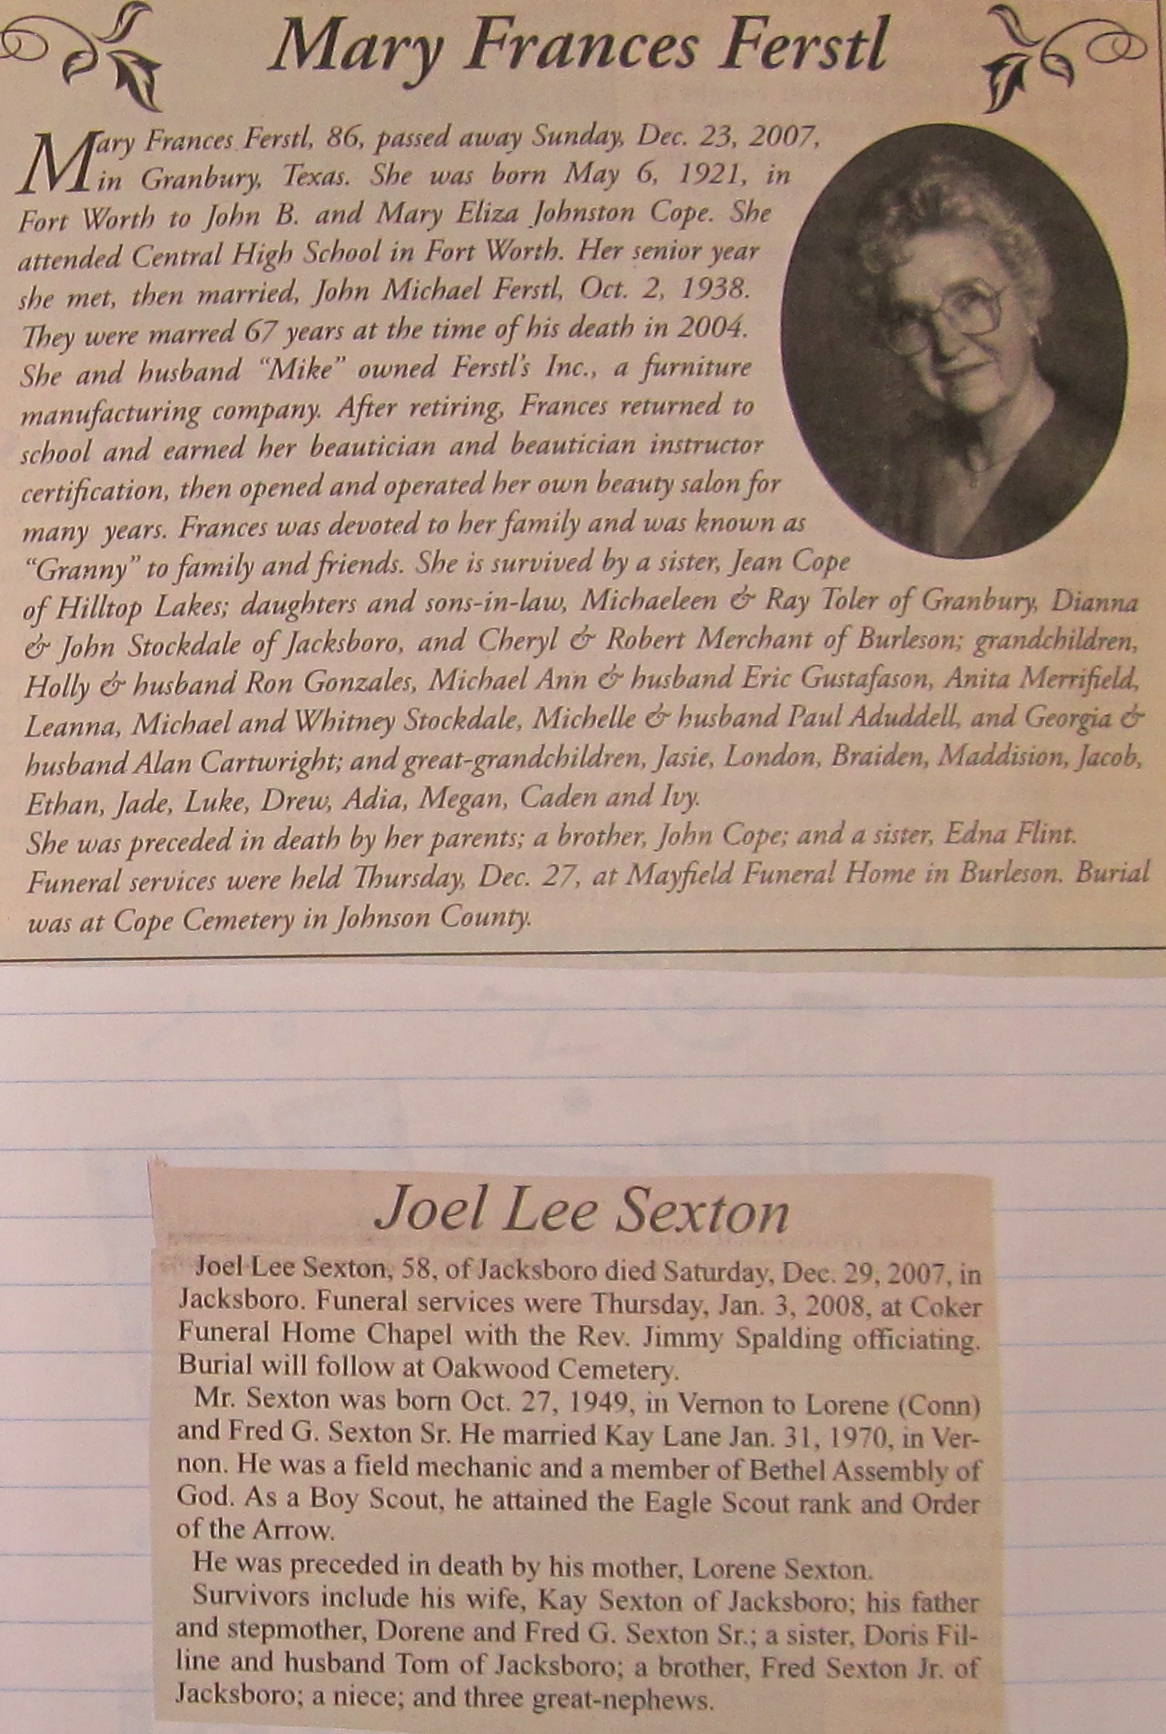 Mary Frances Ferstl
Mary Frances Ferstl, 86, passed away Sunday, Dec. 23, 2007,
in Granbury, Texas. She was born May 6, 1921, in
Fort Worth to John B. and Mary Eliza Johnston Cope. She
attended Central High School in Fort Worth. Her senior year
she met, then married, John Michael Ferstl, Oct. 2, 1938.
They were marred 67 years at the time of his death in 2004.
She and husband “Mike” owned Ferstl’s Inc., a furniture
manufacturing company. After retiring, Frances returned to
school and earned her beautician and beautician instructor
certification, then opened and operated her own beauty salon for
many years. Frances was devoted to her family and was known as
“Granny” to family and friends. She is survived by a sister, Jean Cope
of Hilltop Lakes; daughters and sons-in-law, Michaeleen & Ray Toler of Granbury, Dianna
& John Stockdale of Jacksboro, and Cheryl & Robert Merchant of Burleson; grandchildren,
Holly & husband Ron Gonzales, Michael Ann & husband Eric Gustafason, Anita Merrifield,
Leanna, Michael and Whitney Stockdale, Michelle & husband Paul Aduddell, and Georgia &
husband Alan Cartwright; and great-grandchildren, Jasie, London, Braiden, Maddision, Jacob,
Ethan, Jade, Luke, Drew, Adia, Megan, Caden and Ivy.
She was preceded in death by her parents; a brother, John Cope; and a sister, Edna Flint.
Funeral services were held Thursday, Dec. 27, at Mayfield Funeral Home in Burleson. Burial
was at Cope Cemetery in Johnson County.
Joel Lee Sexton
Joel Lee Sexton, 58, of Jacksboro died Saturday, Dec. 29, 2007, in
Jacksboro. Funeral services were Thursday, Jan. 3, 2008, at Coker
Funeral Home Chapel with the Rev. Jimmy Spalding officiating.
Burial will follow at Oakwood Cemetery.
Mr. Sexton was born Oct. 27, 1949, in Vernon to Lorene (Conn)
and Fred G. Sexton Sr. He married Kay Lane Jan. 31, 1970, in Ver-
non. He was a field mechanic and a member of Bethel Assembly of
God. As a Boy Scout, he attained the Eagle Scout rank and Order
of the Arrow.
He was preceded in death by his mother, Lorene Sexton.
Survivors include his wife, Kay Sexton of Jacksboro; his father
and stepmother, Dorene and Fred G. Sexton Sr.; a sister, Doris Fil-
line and husband Tom of Jacksboro; a brother, Fred Sexton Jr. of
Jacksboro; a niece; and three great-nephews.